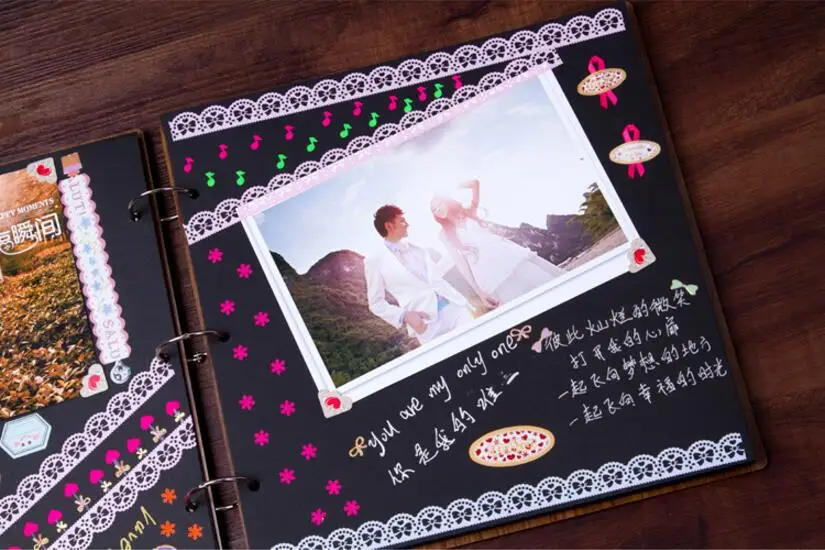 PY MOMENTS
瞬间
You are my only one
你是我的唯一
彼此灿烂的微笑
打开我的心扉
一起飞向梦想的地方
一起飞向幸福的时光
Love